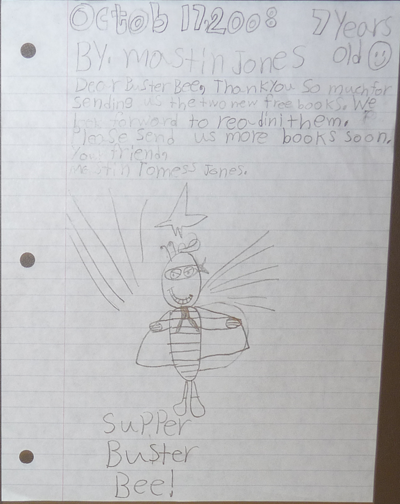 Octob 17.2008 7 Years
BY. mastin Jones old
Dear Buster Bee, Thank You So much for
Sending us the two new free books. We
forward to reading them. I
please send us more books soon.
Your friend,
mastin Tomess Jones.
Supper
Buster
Bee!